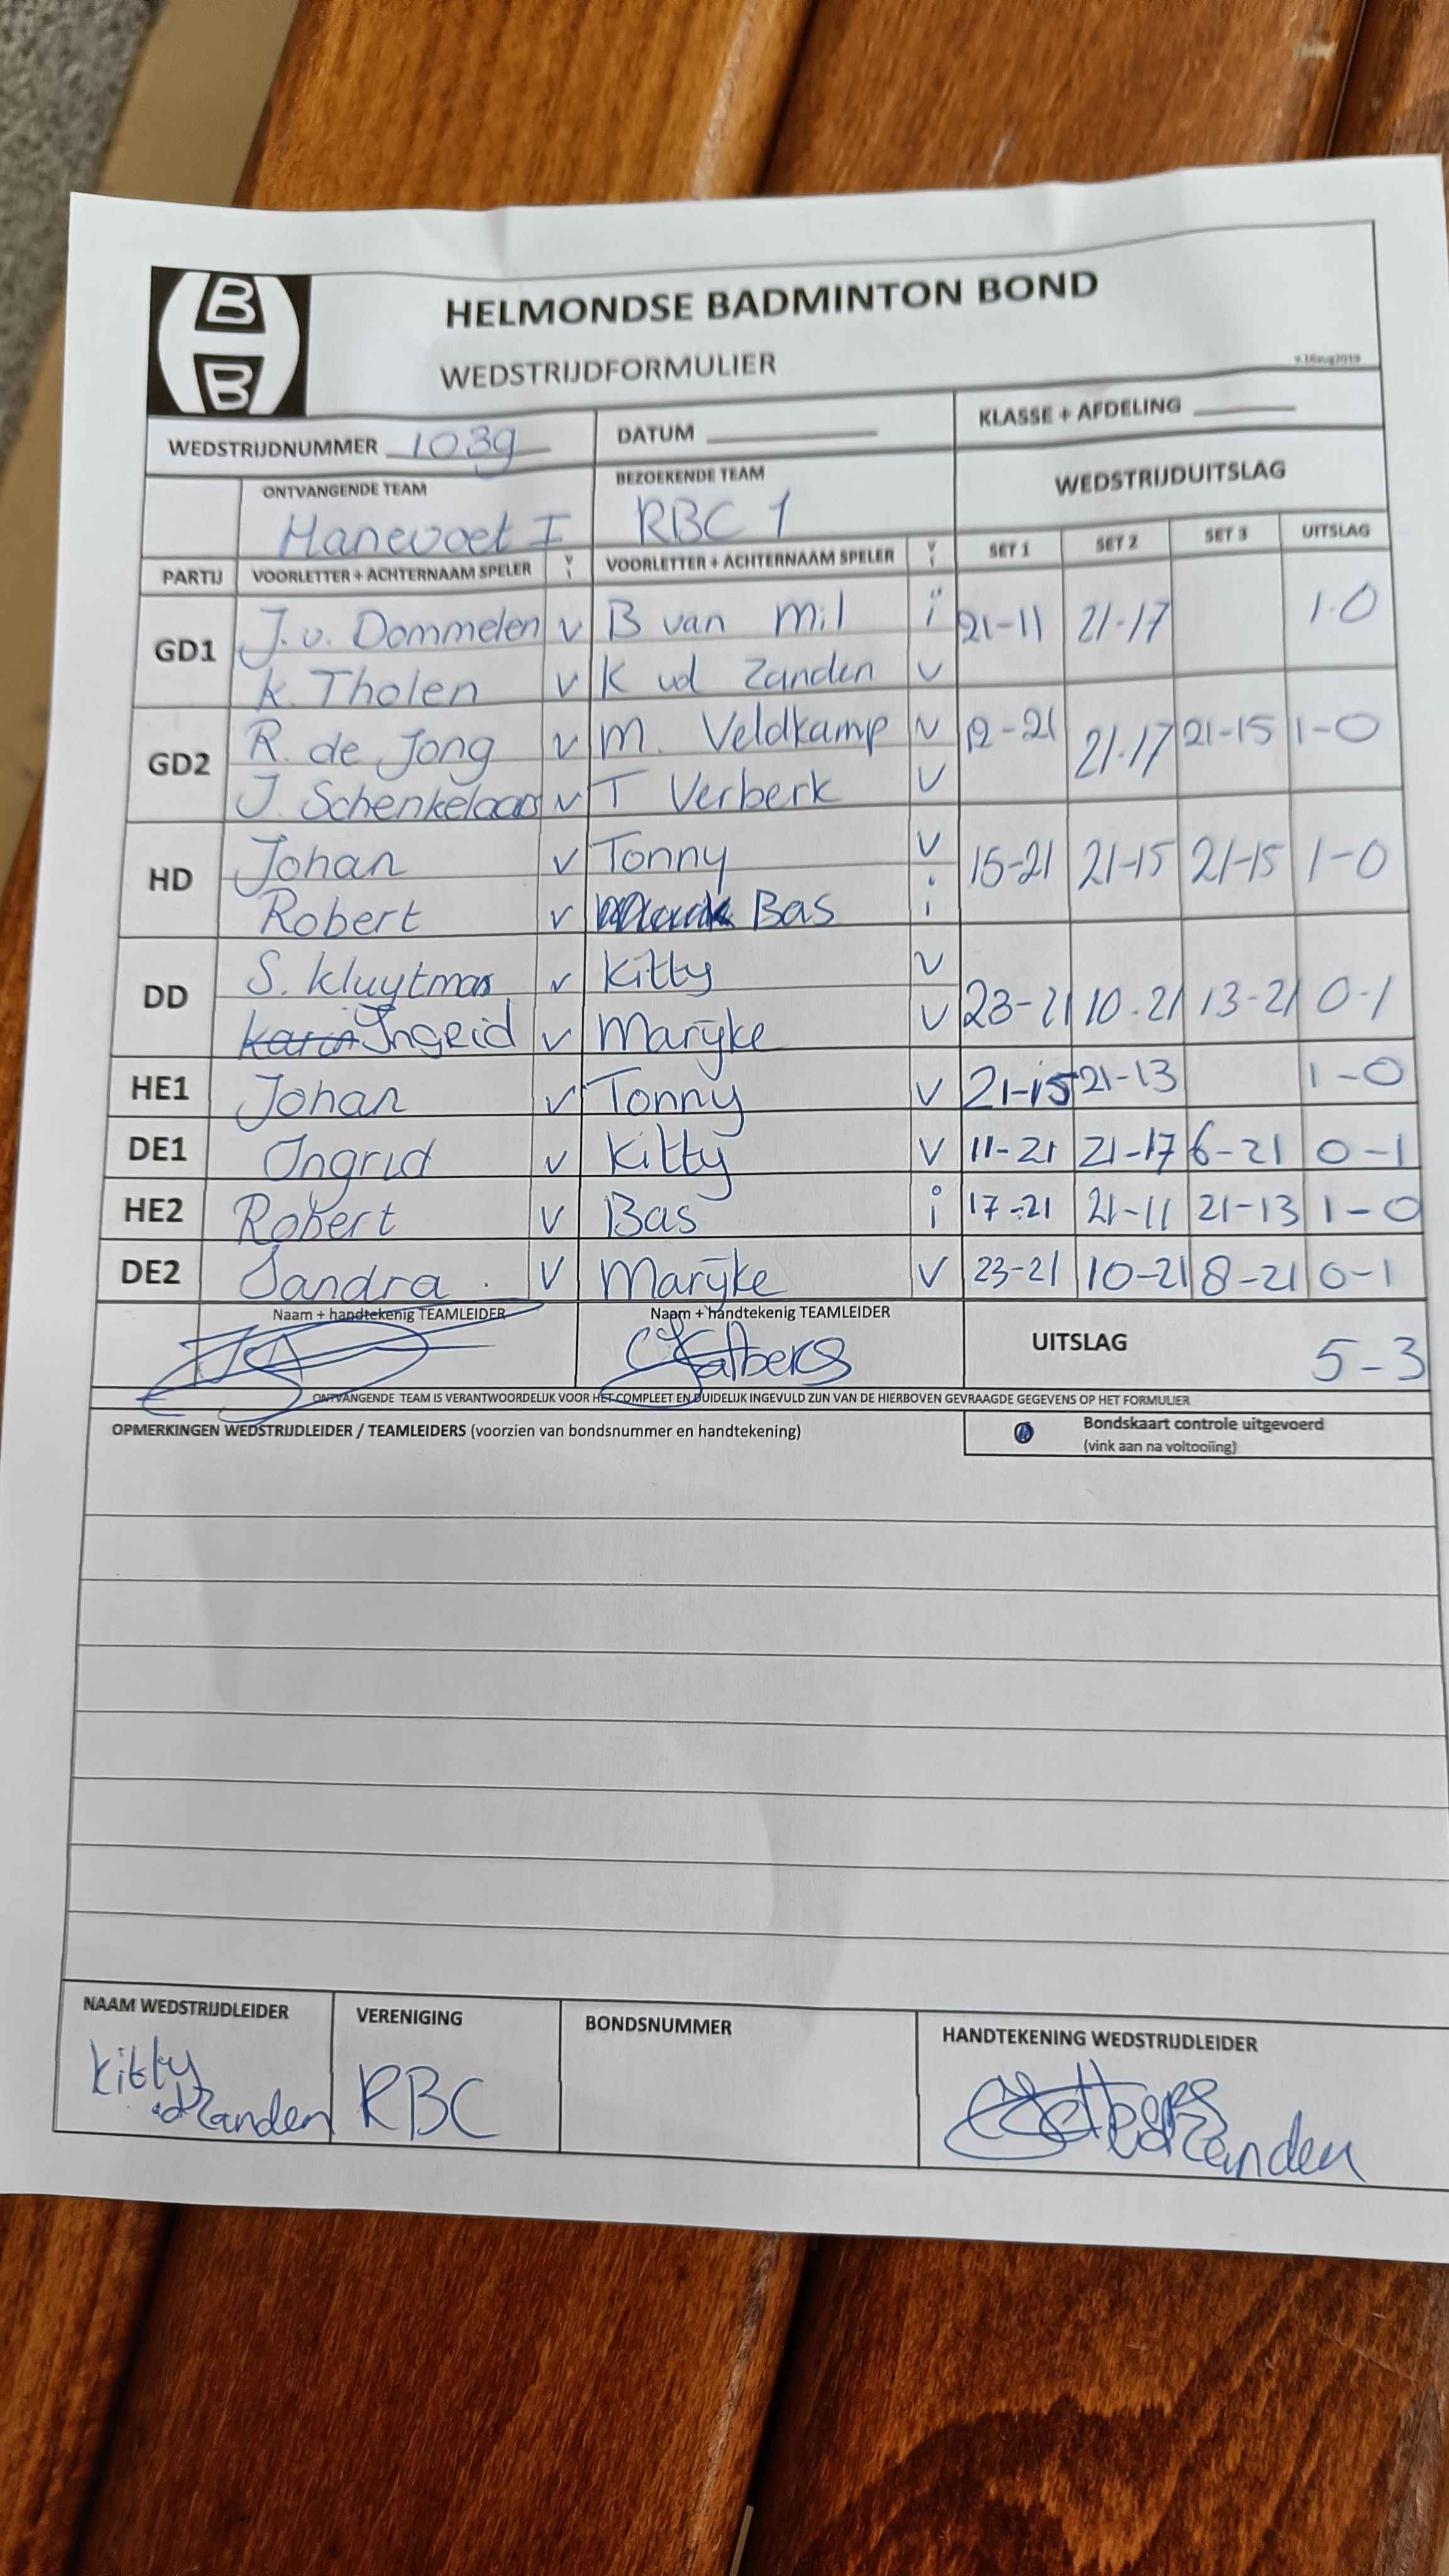 B
B
HELMONDSE BADMINTON BOND
WEDSTRIJDFORMULIER
v.16aug2019
WEDSTRIJDNUMMER 1039 DATUM KLASSE + AFDELING
ONTVANGENDE TEAM BEZOEKENDE TEAM WEDSTRIJDUITSLAG
Hanevoet I RBC 1
PARTIJ VOORLETTER + ACHTERNAAM SPELER V I VOORLETTER + ACHTERNAAM SPELER V I SET 1 SET 2 SET 3 UITSLAG
GD1 J. v. Dommelen v B van Mil i 21-11 21-17 1-0
K. Tholen v K vd Zanden v
GD2 R. de Jong v M. Veldkamp v 12-21 21-17 21-15 1-0
J. Schenkelaars v T Verberk v
HD Johan v Tonny v 15-21 21-15 21-15 1-0
Robert v Bas i
DD S. Kluytmas v Kitty v 23-21 10-21 13-21 0-1
Karin Ingrid v Marijke v
HE1 Johan v Tonny v 21-15 21-13 1-0
DE1 Ingrid v Kitty v 11-21 21-17 6-21 0-1
HE2 Robert v Bas i 17-21 21-11 21-13 1-0
DE2 Sandra. v Marijke v 23-21 10-21 8-21 0-1
Naam + handtekenig TEAMLEIDER Naam + handtekenig TEAMLEIDER
UITSLAG 5-3
ONTVANGENDE TEAM IS VERANTWOORDELIJK VOOR HET COMPLEET EN DUIDELIJK INGEVULD ZIJN VAN DE HIERBOVEN GEVRAAGDE GEGEVENS OP HET FORMULIER
OPMERKINGEN WEDSTRIJDLEIDER / TEAMLEIDERS (voorzien van bondsnummer en handtekening)
Bondskaart controle uitgevoerd
(vink aan na voltooiing)
NAAM WEDSTRIJDLEIDER VERENIGING BONDSNUMMER HANDTEKENING WEDSTRIJDLEIDER
Kitty
vdZanden RBC